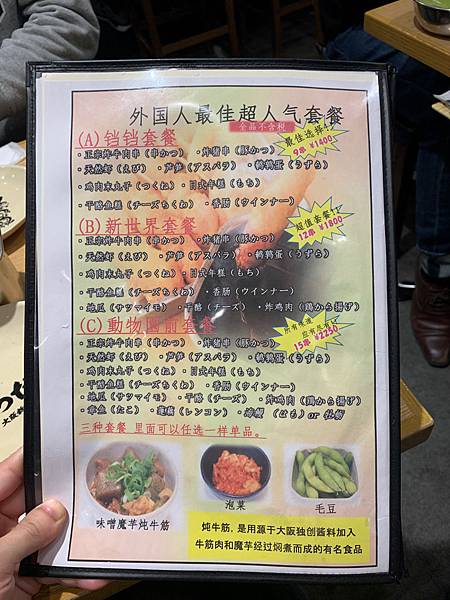 外国人最佳超人气套餐
全品不含税
(A) 铛铛套餐
最佳选择!
9串 ¥1400
・正宗炸牛肉串（串かつ）・炸猪串（豚かつ）
・天然虾（えび）・芦笋（アスパラ）・鹌鹑蛋（うずら）
・鸡肉末丸子（つくね）・日式年糕（もち）
・干酪鱼糕（チーズちくわ）・香肠（ウインナー）
(B) 新世界套餐
超值套餐!
12串 ¥1800
・正宗炸牛肉串（串かつ）・炸猪串（豚かつ）
・天然虾（えび）・芦笋（アスパラ）・鹌鹑蛋（うずら）
・鸡肉末丸子（つくね）・日式年糕（もち）
・干酪鱼糕（チーズちくわ）・香肠（ウインナー）
・地瓜（サツマイモ）・干酪（チーズ）・炸鸡肉（鶏から揚げ）
(C) 動物园前套餐
15串 ¥2250
・正宗炸牛肉串（串かつ）・炸猪串（豚かつ）
・天然虾（えび）・芦笋（アスパラ）・鹌鹑蛋（うずら）
・鸡肉末丸子（つくね）・日式年糕（もち）
・干酪鱼糕（チーズちくわ）・香肠（ウインナー）
・地瓜（サツマイモ）・干酪（チーズ）・炸鸡肉（鶏から揚げ）
・章鱼（たこ）・莲藕（レンコン）・海鳗（はも）or 牡蛎
三种套餐 里面可以任选一样单品。
味噌魔芋炖牛筋
泡菜
毛豆
炖牛筋，是用源于大阪独创酱料加入
牛筋肉和魔芋经过焖煮而成的有名食品